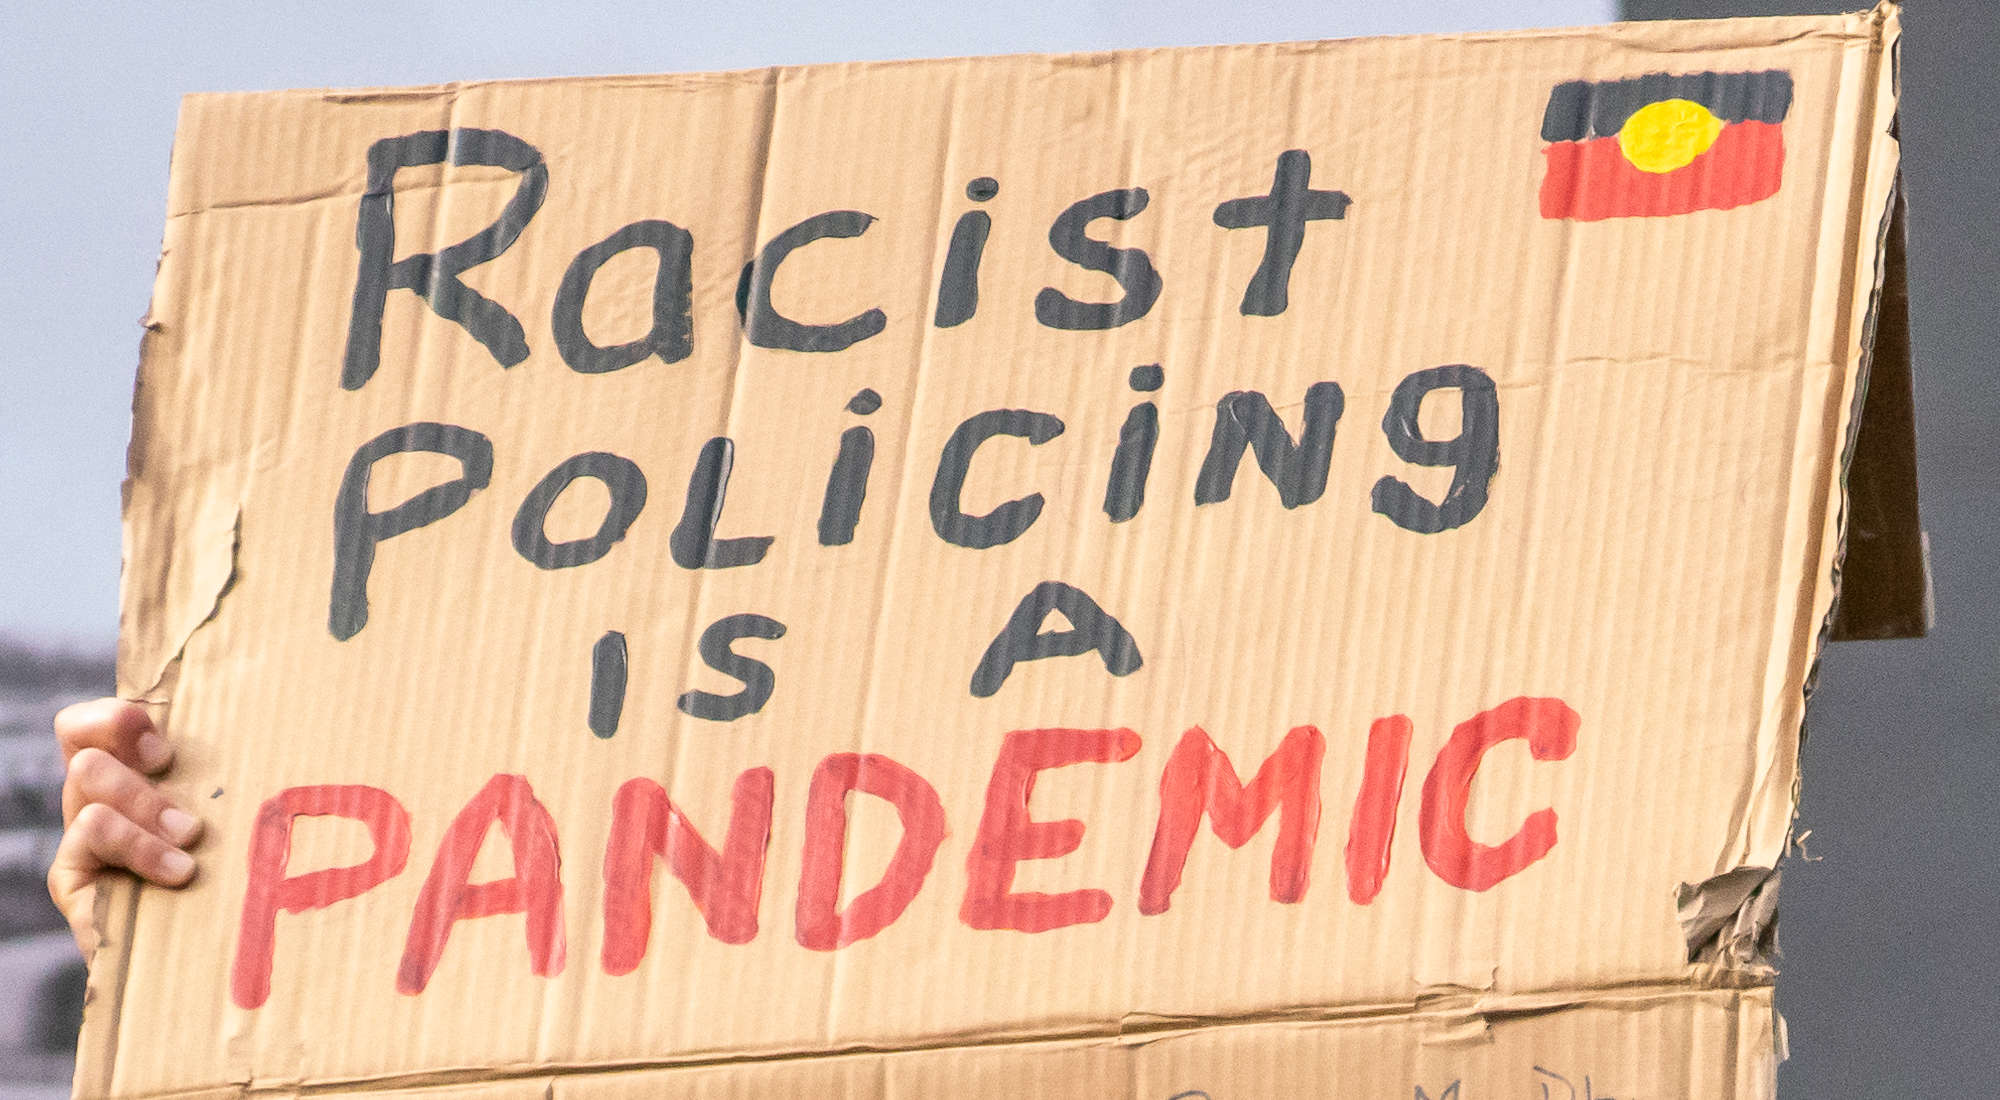 Racist
POLiCiNg
IS A
PANDEMIC